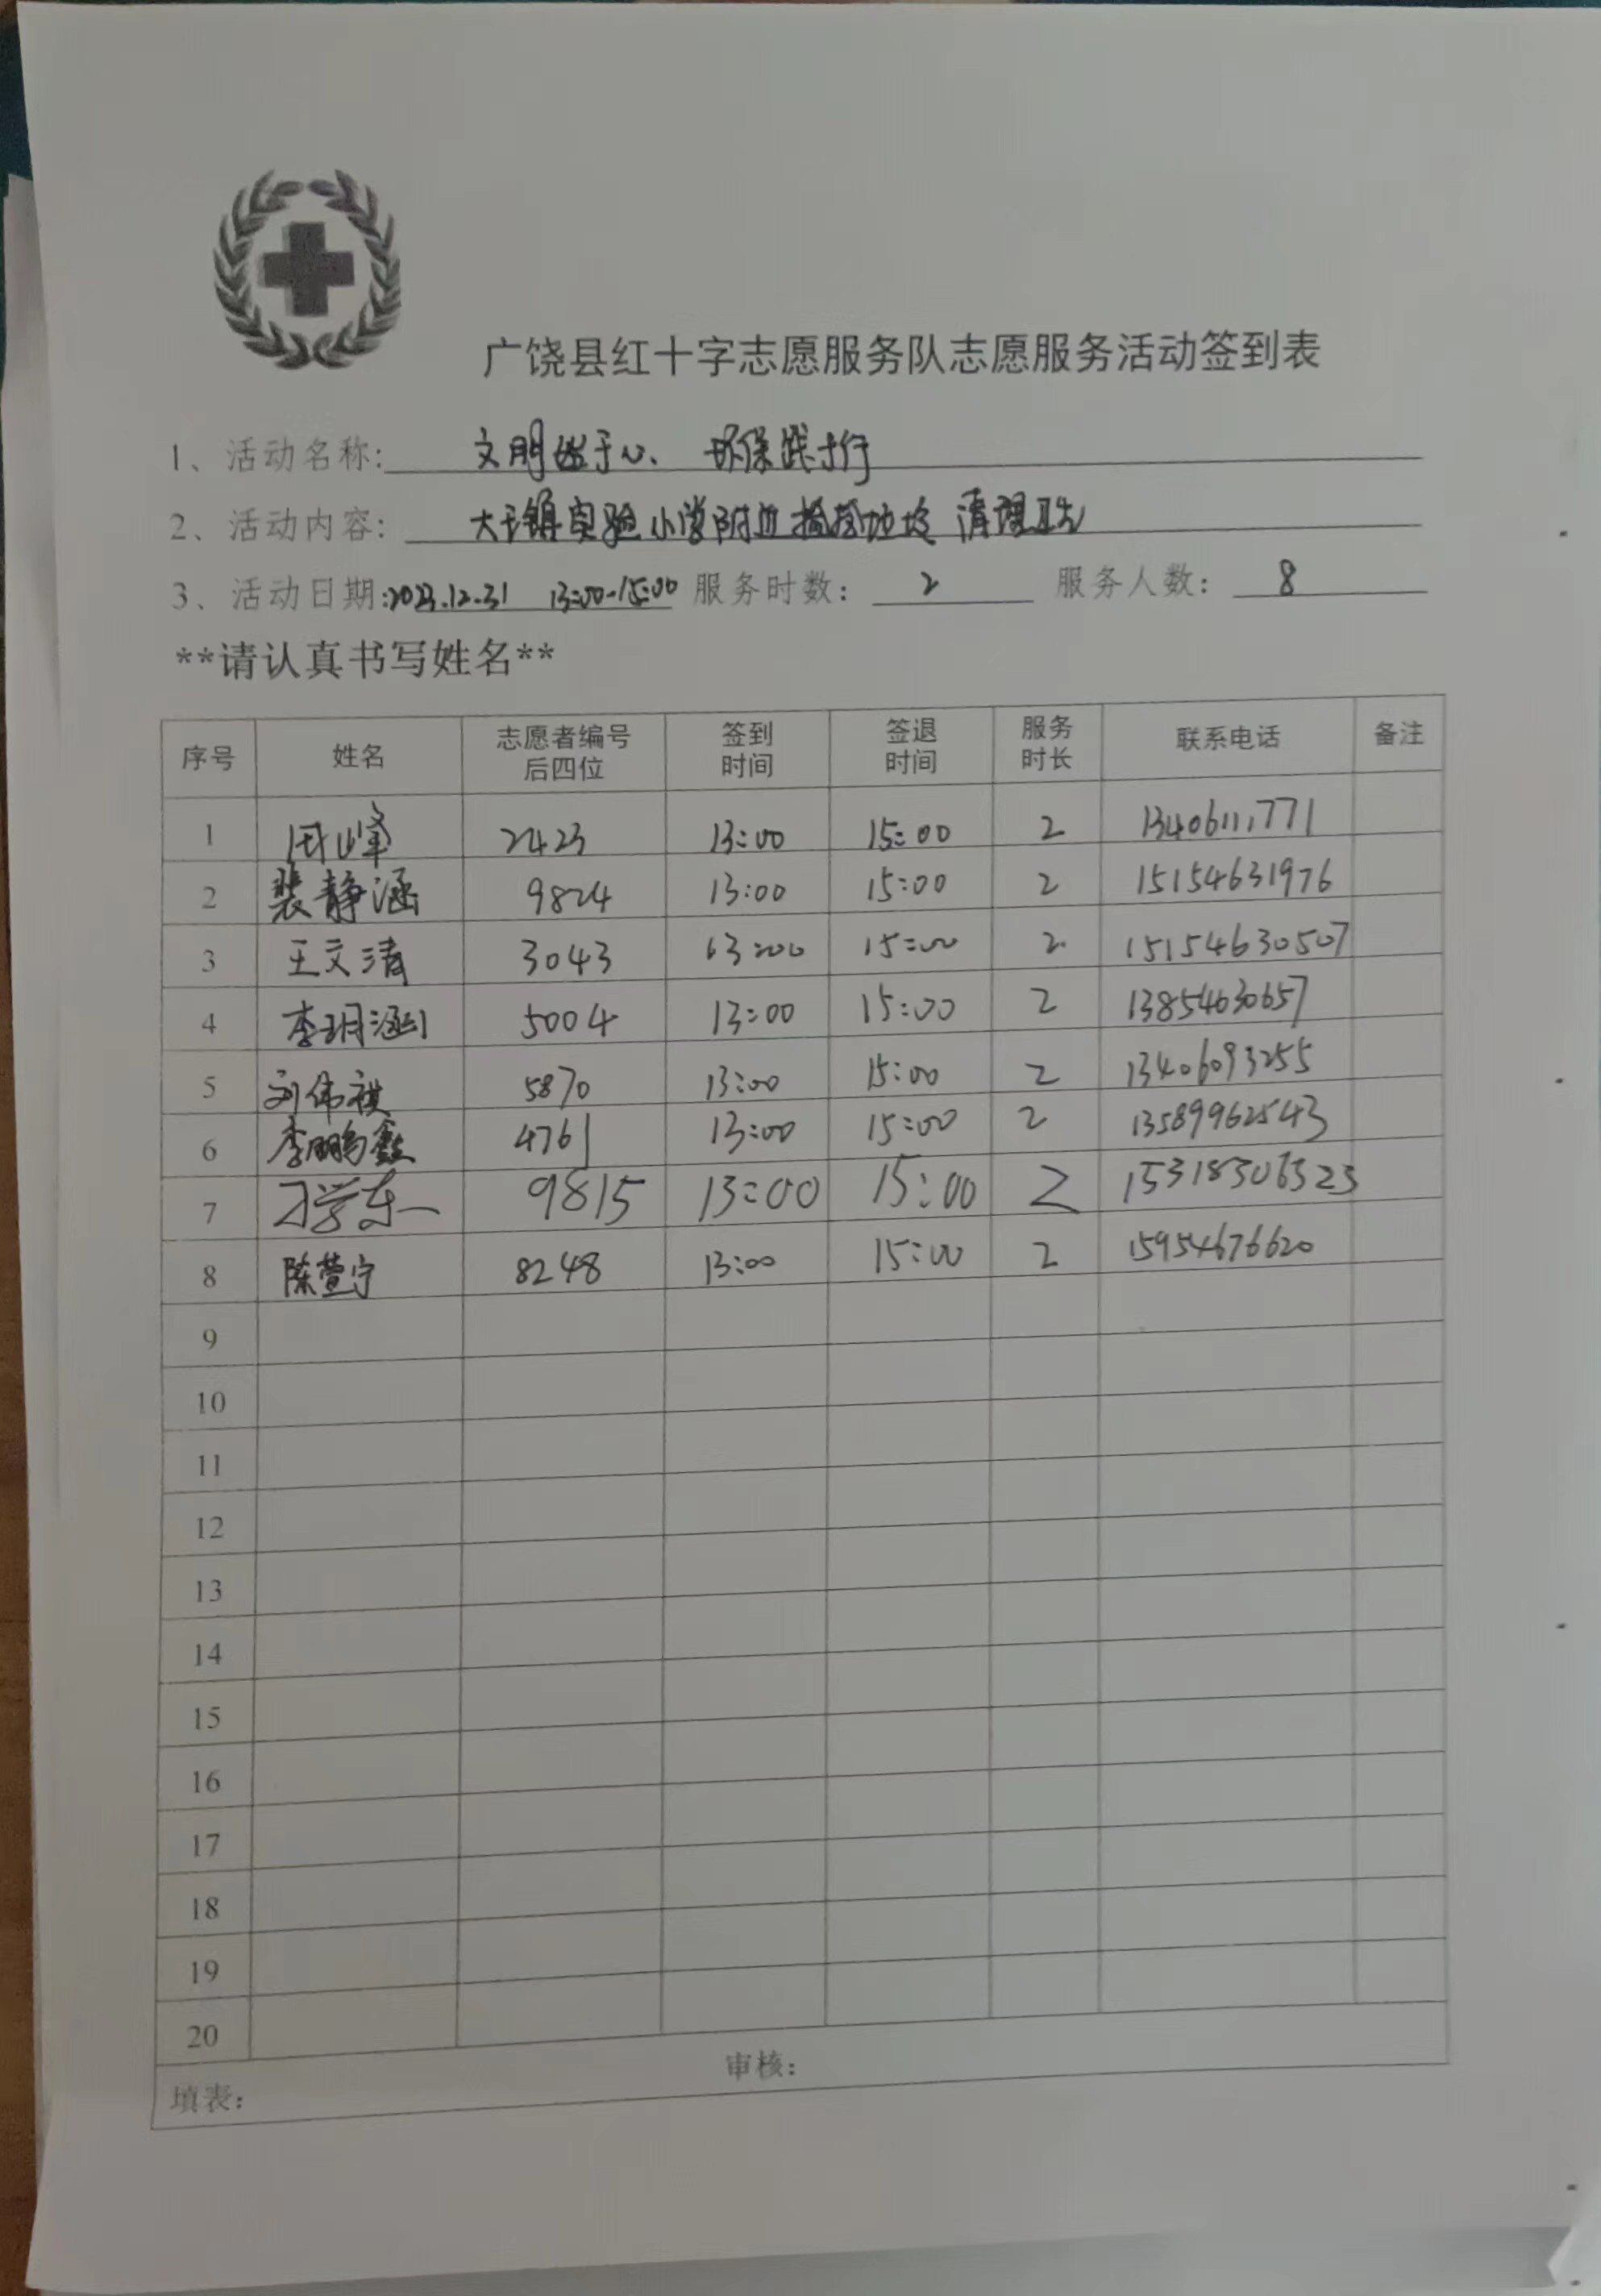 广饶县红十字志愿服务队志愿服务活动签到表
1、活动名称: 文明始于心 环保践于行
2、活动内容: 大王镇实验小学附近捡拾垃圾 清理卫生
3、活动日期:2023.12.31 13:00-15:00 服务时数: 2 服务人数: 8
**请认真书写姓名**
序号 姓名 志愿者编号后四位 签到时间 签退时间 服务时长 联系电话 备注
1 周峰 2423 13:00 15:00 2 13406111771
2 裴静涵 9824 13:00 15:00 2 15154631976
3 王文清 3043 13:00 15:00 2 15154630507
4 李玥涵 5004 13:00 15:00 2 13854630657
5 刘伟祺 5870 13:00 15:00 2 13406093255
6 李鹏鑫 4761 13:00 15:00 2 13589962543
7 刁学东 9815 13:00 15:00 2 15318306323
8 陈萱宁 8248 13:00 15:00 2 15954676620
9
10
11
12
13
14
15
16
17
18
19
20
填表: 审核: